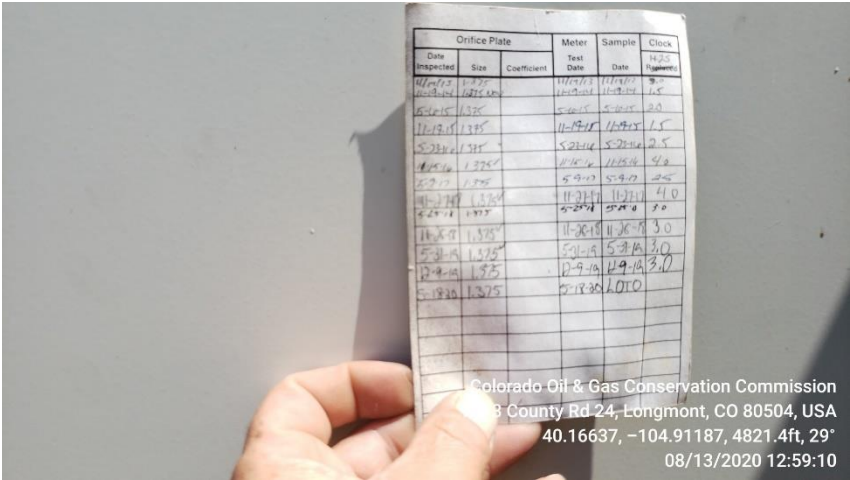 Orifice Plate Meter Sample Clock
Date Inspected Size Coefficient Test Date Date H2S
11/19/13 1.375 11/19/13
11-19-14 1.375 11-19-14 11-19-14 1.5
5-6-15 1.375 5-6-15 5-6-15 2.0
11-19-15 1.375 11-19-15 11-19-15 1.5
5-23-16 1.375 5-23-16 5-23-16 2.5
11-15-16 1.375 11-15-16 11-15-16 4.0
5-9-17 1.375 5-9-17 5-9-17 2.5
11-27-17 1.375 11-27-17 11-27-17 4.0
5-25-18 1.375 5-25-18 3.0
11-26-18 1.375 11-26-18 11-26-18 3.0
5-31-19 1.375 5-31-19 5-31-19 3.0
12-9-19 1.375 12-9-19 12-9-19 3.0
5-18-20 1.375 5-18-20 LOTO
Colorado Oil & Gas Conservation Commission
3 County Rd 24, Longmont, CO 80504, USA
40.16637, −104.91187, 4821.4ft, 29°
08/13/2020 12:59:10